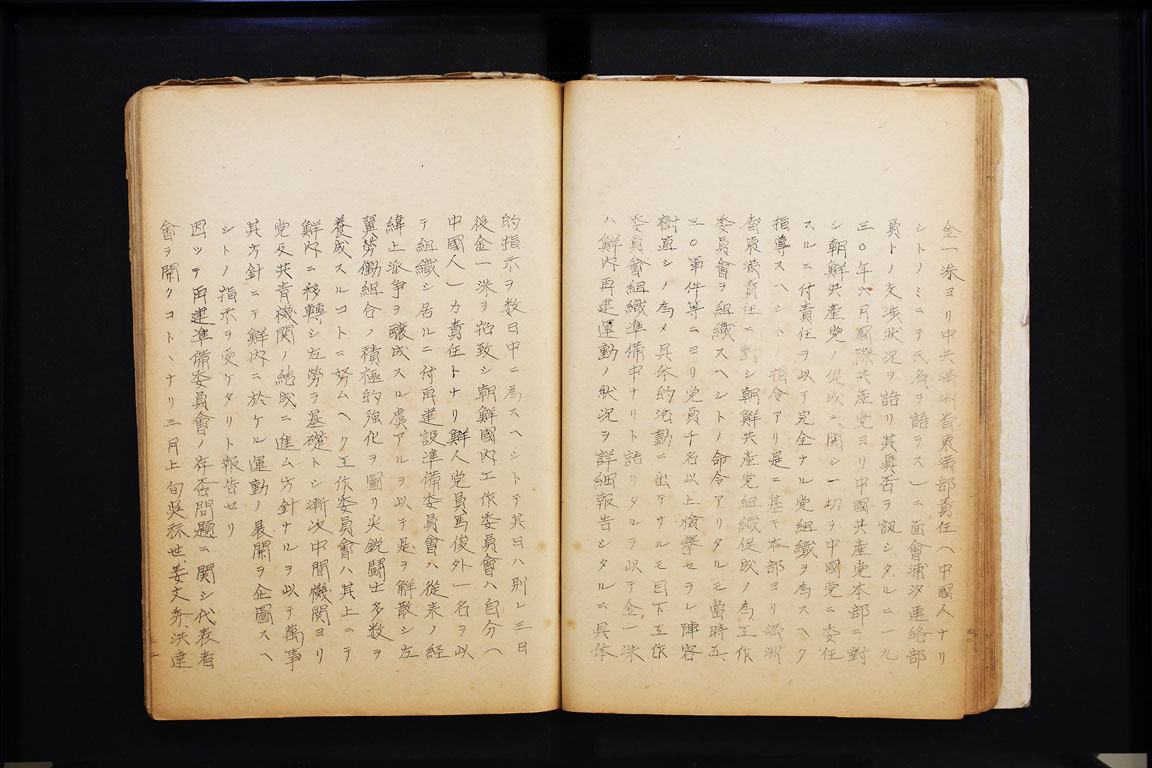 金一洙ヨリ中共満洲省東満部責任（中國人ナリ
シトノミニテ氏名ヲ語ラス）ニ面會浦汐連絡部
員トノ交渉状況ヲ語リ其真否ヲ訊シタルニ一九
三〇年六月國際共産党ヨリ中國共産党本部ニ對
シ朝鮮共産党ノ促成ニ関シ一切ヲ中國党ニ委任
スルニ付責任ヲ以テ完全ナル党組織ヲ為スヘク
指導スヘシトノ指令アリ是ニ基キ本部ヨリ満洲
省東満責任ニ對シ朝鮮共産党組織促成ノ為工作
委員會ヲ組織スヘシトノ命令アリタルモ當時五、
三〇事件等ニヨリ党員十名以上検擧セラレ陣容
樹直シノ為メ具体的活動ニ出テサルモ目下工作
委員會組織準備中ナリト語リタルヲ以テ金一洙
ハ鮮内再建運動ノ状況ヲ詳細報告シタルニ具体
的指示ヲ数日中ニ為スヘシトテ其日ハ別レ三日
後金一洙ヲ招致シ朝鮮國内工作委員會ハ自分（
中國人）カ責任トナリ鮮人党員馬俊外一名ヲ以
テ組織シ居ルニ付再建設準備委員會ハ従来ノ経
緯上派争ヲ醸成スル虞アルヲ以テ是ヲ解散シ左
翼労働組合ノ積極的強化ヲ圖リ尖鋭闘士多数ヲ
養成スルコトニ努ムヘク工作委員會ハ其上ニテ
鮮内ニ移轉シ左労ヲ基礎トシ漸次中間機関ヨリ
党及共青機関ノ結成ニ進ム方針ナルヲ以テ萬事
其方針ニテ鮮内ニ於ケル運動ノ展開ヲ企圖スヘ
シトノ指示ヲ受ケタリト報告セリ
因ッテ再建準備委員會ノ存否問題ニ関シ代表者
會ヲ開クコトヽナリ三月上旬呉祢世、姜文秀、洪達